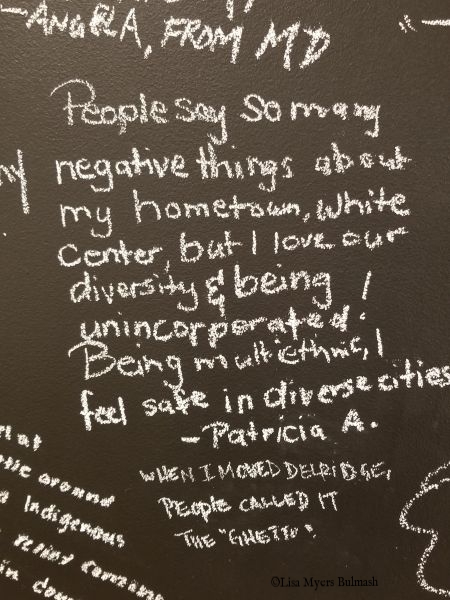 -ANGELA, FROM MD
People say so many
negative things about
my hometown, White
Center, but I love our
diversity & being
unincorporated!
Being multiethnic, I
feel safe in diverse cities
-Patricia A.
WHEN I MOVED DELRIDGE,
PEOPLE CALLED IT
THE "GHETTO".
around
Indigenous
©Lisa Myers Bulmash